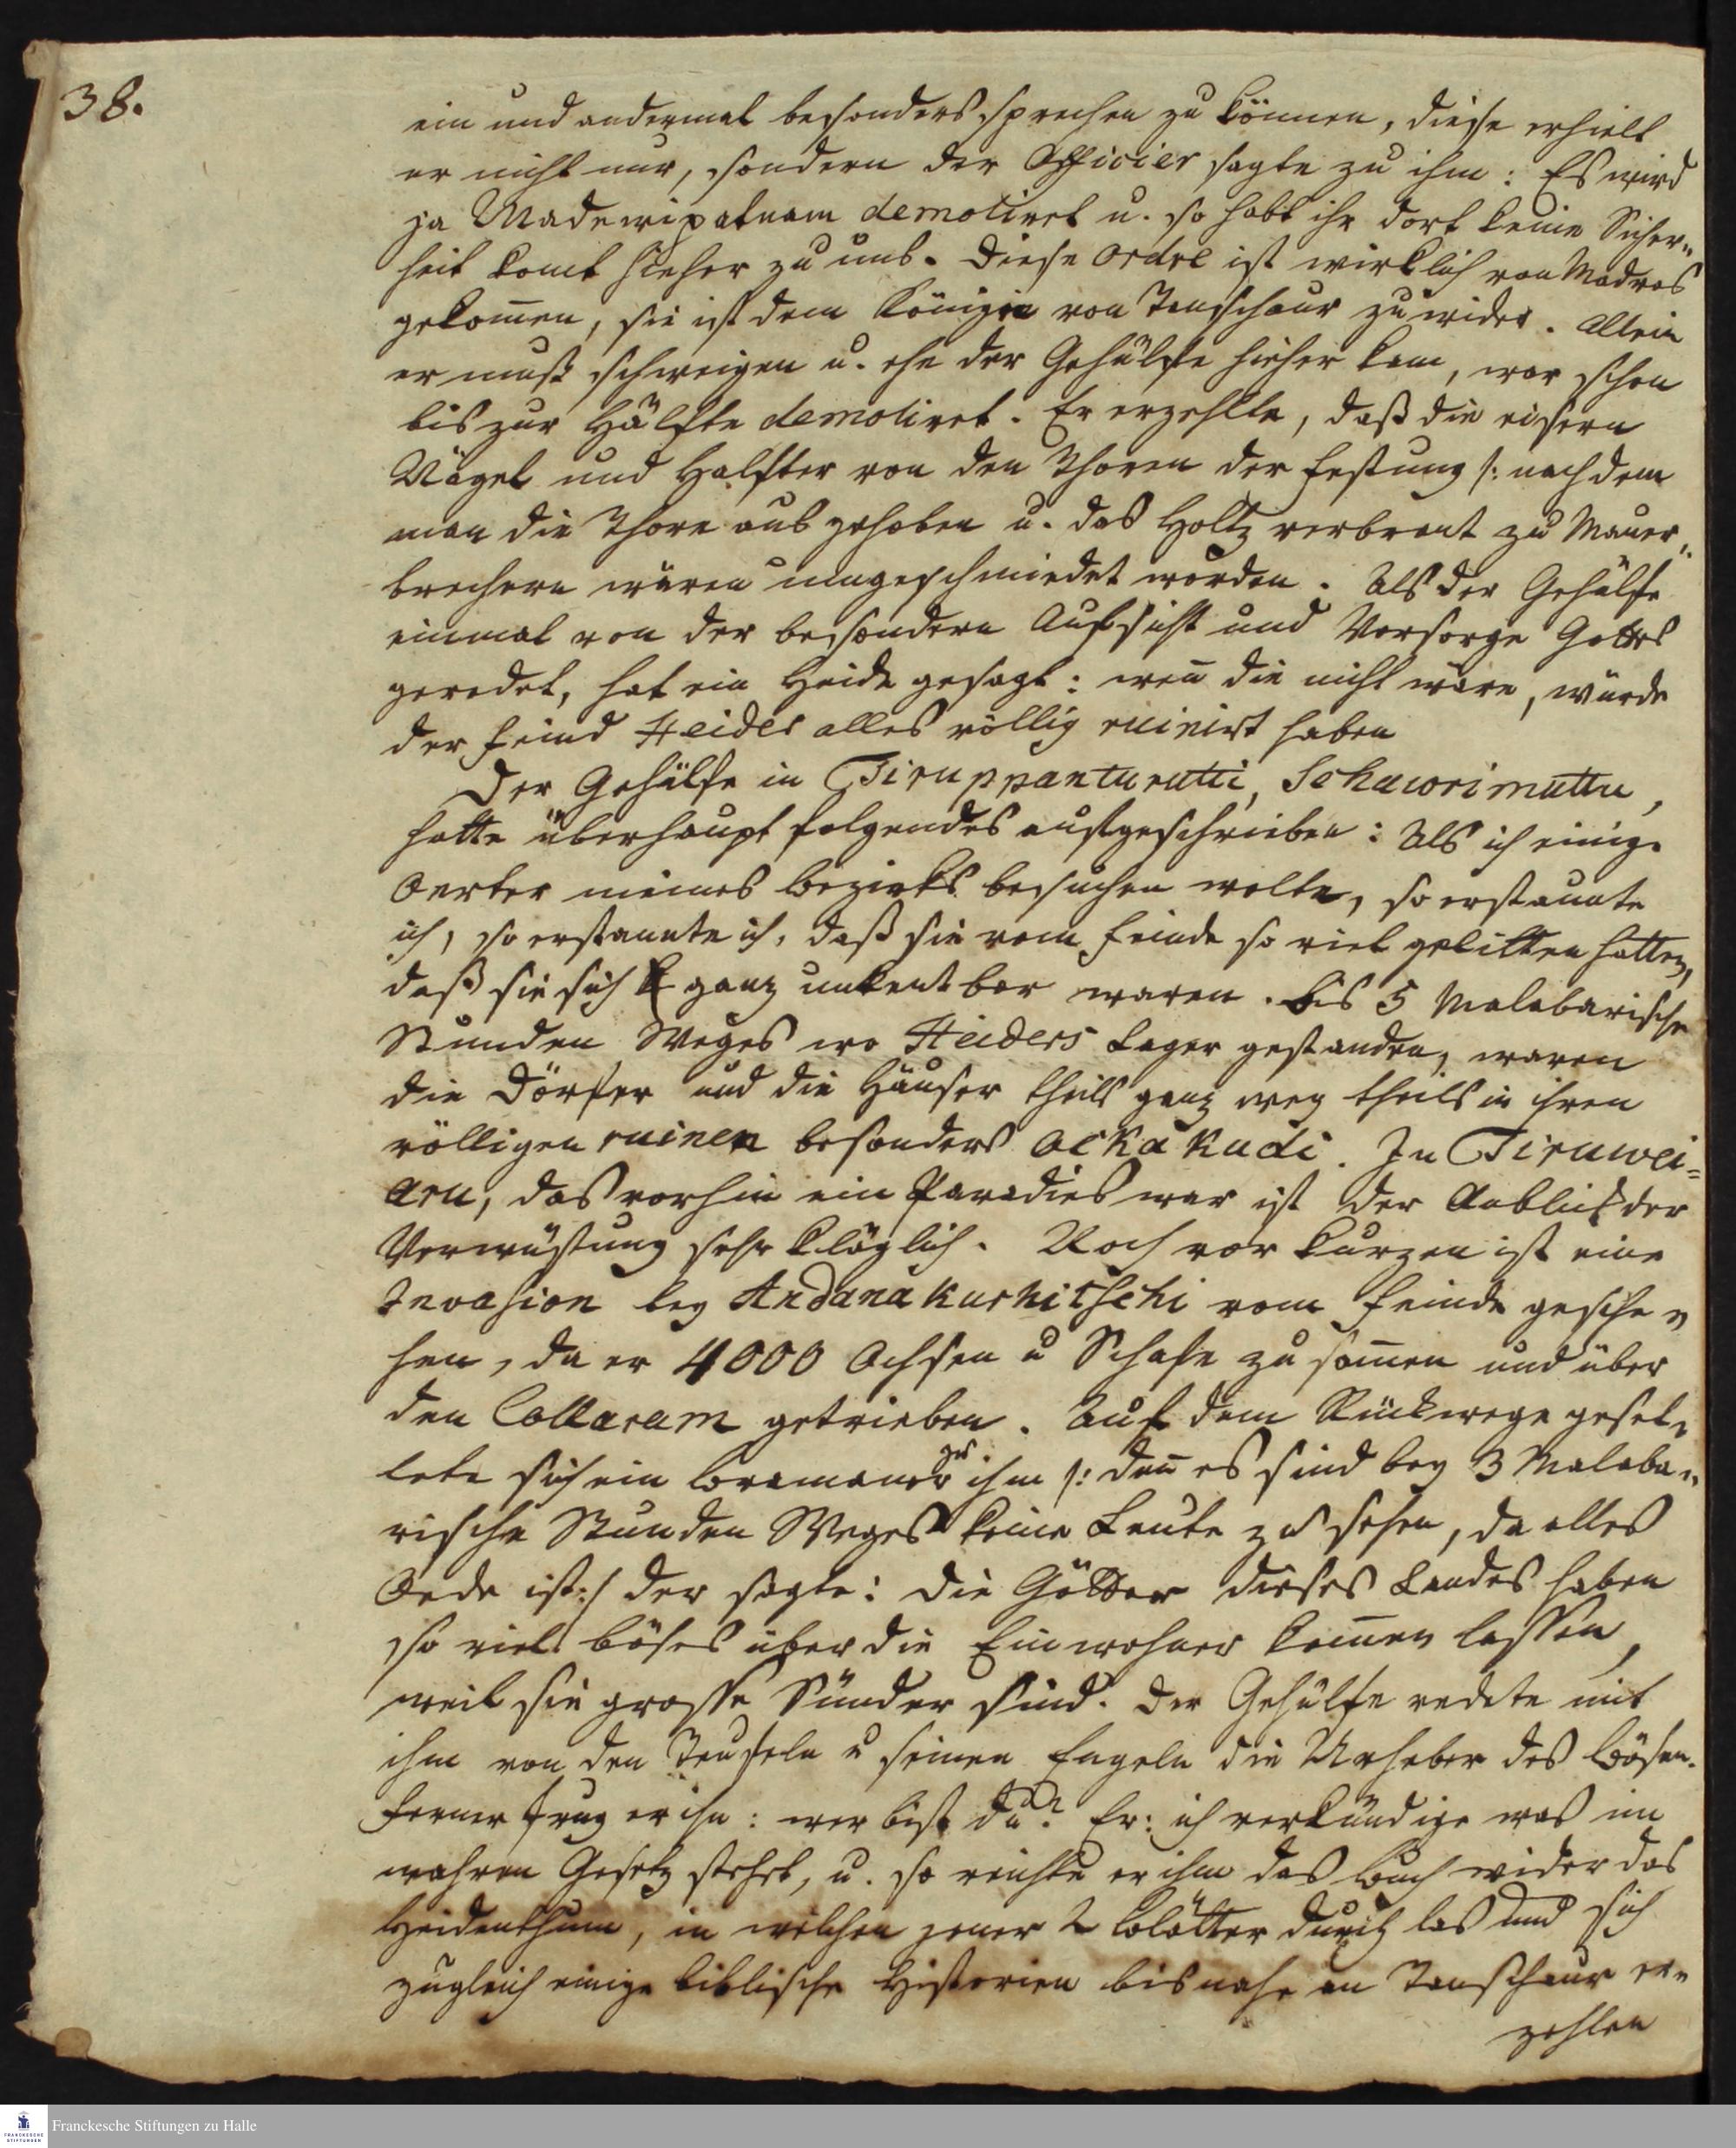 38.
ein und andermal besonders sprechen zu können, diese erhielt
er nicht nur, sondern der Officier sagte zu ihm: Es wird
ja Madewipatnam demoliret u. so habt ihr dort keine Sicher„
heit komt hieher zu uns. Diese Ordre ist wirklich von Madras
gekom̄en, sie ist dem König von Tanschaur zuwider. Allein
er muß schweigen u. ehe der Gehülfe hieher kam, war schon
bis zur Hälfte demoliret. Er erzehlte, daß die eisern
Nägel und Halfter von den Thoren der Festung /: nachdem
man die Thore ausgehoben u. das Holtz verbrant zu Mauer„
brechern wären umgeschmiedet worden. Als der Gehülfe
einmal von der besondern Aufsicht und Vorsorge Gottes
geredet, hat ein Heide gesagt: wen̄ die nicht wäre, würde
der Feind Heider alles völlig ruinirt haben
Der Gehülfe in Tiruppanturutti, Schawrimuttu,
hatte überhaupt folgendes aufgeschrieben: Als ich einige
Oerter meines Bezirks besuchen wolte, so erstaunte
ich, so erstaunte ich, daß sie vom Feinde so viel gelitten hatten,
daß sie sich ganz unkentbar waren. Bis 5 Malabarische
Stunden Weges wo Heiders Lager gestanden, waren
die Dörfer und die Häuser theils ganz weg theils in ihren
völligen ruinen besonders Ackakudi. In Tiruwei=
aru, das vorhin ein Paradies war ist der Anblick der
Verwüstung sehr kläglich. Noch vor kurzen ist eine
Invasion bey Andanakurhitschi vom Feinde gesche„
hen, da er 4000 Ochsen u Schafe zusam̄en und über
den Collaram getrieben. Auf dem Rückwege gesel„
lete sich ein Bramaner zu ihm /: den̄ es sind bey 3 Malaba„
rische Stunden Weges keine Leute zu sehen, da alles
Oede ist :/ der sagte: Die Götter dieses Landes haben
so viel böses über die Einwohner kom̄en lassen,
weil sie grosse Sünder sind. Der Gehülfe redete mit
ihm von den Teufeln u seinen Engeln die Urheber des Bösen.
Ferner frug er ihn: wer bist du? Er: ich verkündige was im
wahren Gesetz stehet, u. so reichte er ihm das Buch wider das
Heidenthum, in welchen jener 2 Blätter durch las und sich
zugleich einige biblische Historien bis nahe an Tanschaur er„
zehlen
Franckesche Stiftungen zu Halle
FRANCKESCHE
STIFTUNGEN